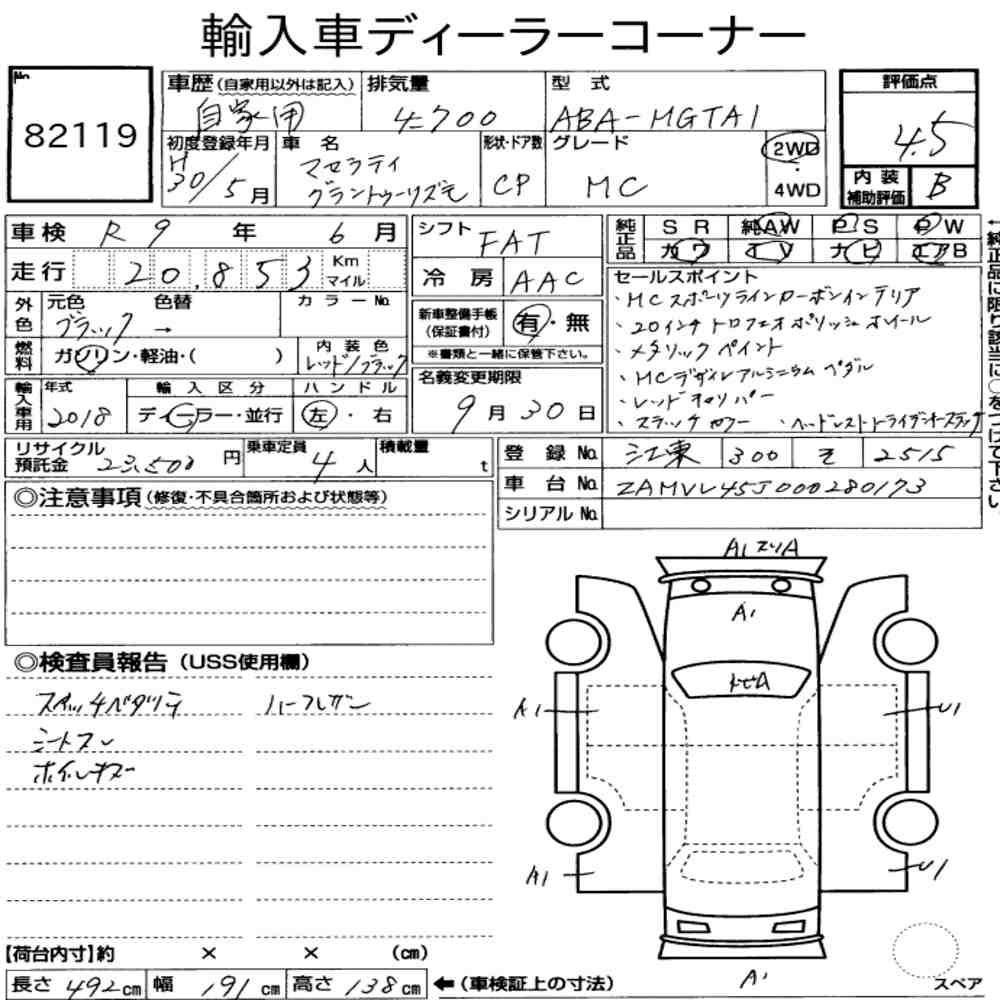 輸入車ディーラーコーナー
No. 82119
車歴(自家用以外は記入) 自家用
排気量 4700
型式 ABA-MGTA1
評価点 4.5
内装補助評価 B
初度登録年月 H30/5月
車名 マセラティ グラントゥーリズモ
形状・ドア数 CP
グレード MC
2WD・4WD
車検 R9年6月
走行 20,853 Km マイル
シフト FAT
冷房 AAC
純正品 SR 純AW PS PW
カワ TV ナビ エアB
←純正品に限り該当に○をつけて下さい。
外色 元色 ブラック → 色替 カラーNo.
燃料 ガソリン・軽油・( )
内装色 レッド/ブラック
新車整備手帳(保証書付) 有・無
※書類と一緒に保管下さい。
輸入車用 年式 2018
輸入区分 ディーラー・並行
ハンドル 左・右
名義変更期限 9月30日
セールスポイント
・MCスポーツラインカーボンインテリア
・20インチトロフェオポリッシュホイール
・メタリックペイント
・MCデザインアルミニウムペダル
・レッドキャリパー
・ステッチカラー ・ヘッドレストトライデントステッチ
リサイクル預託金 23,500円
乗車定員 4人
積載量 t
登録No. 江東 300 そ 2515
車台No. ZAMVL45J000280173
シリアルNo.
◎注意事項(修復・不具合箇所および状態等)
◎検査員報告(USS使用欄)
ハーフレザー
シートスレ
ホイルキズ
A1 スリA
A1
トビA
A1
U1
A1
U1
A1
スペア
【荷台内寸】約 × × (cm)
長さ 492cm 幅 191cm 高さ 138cm ←(車検証上の寸法)